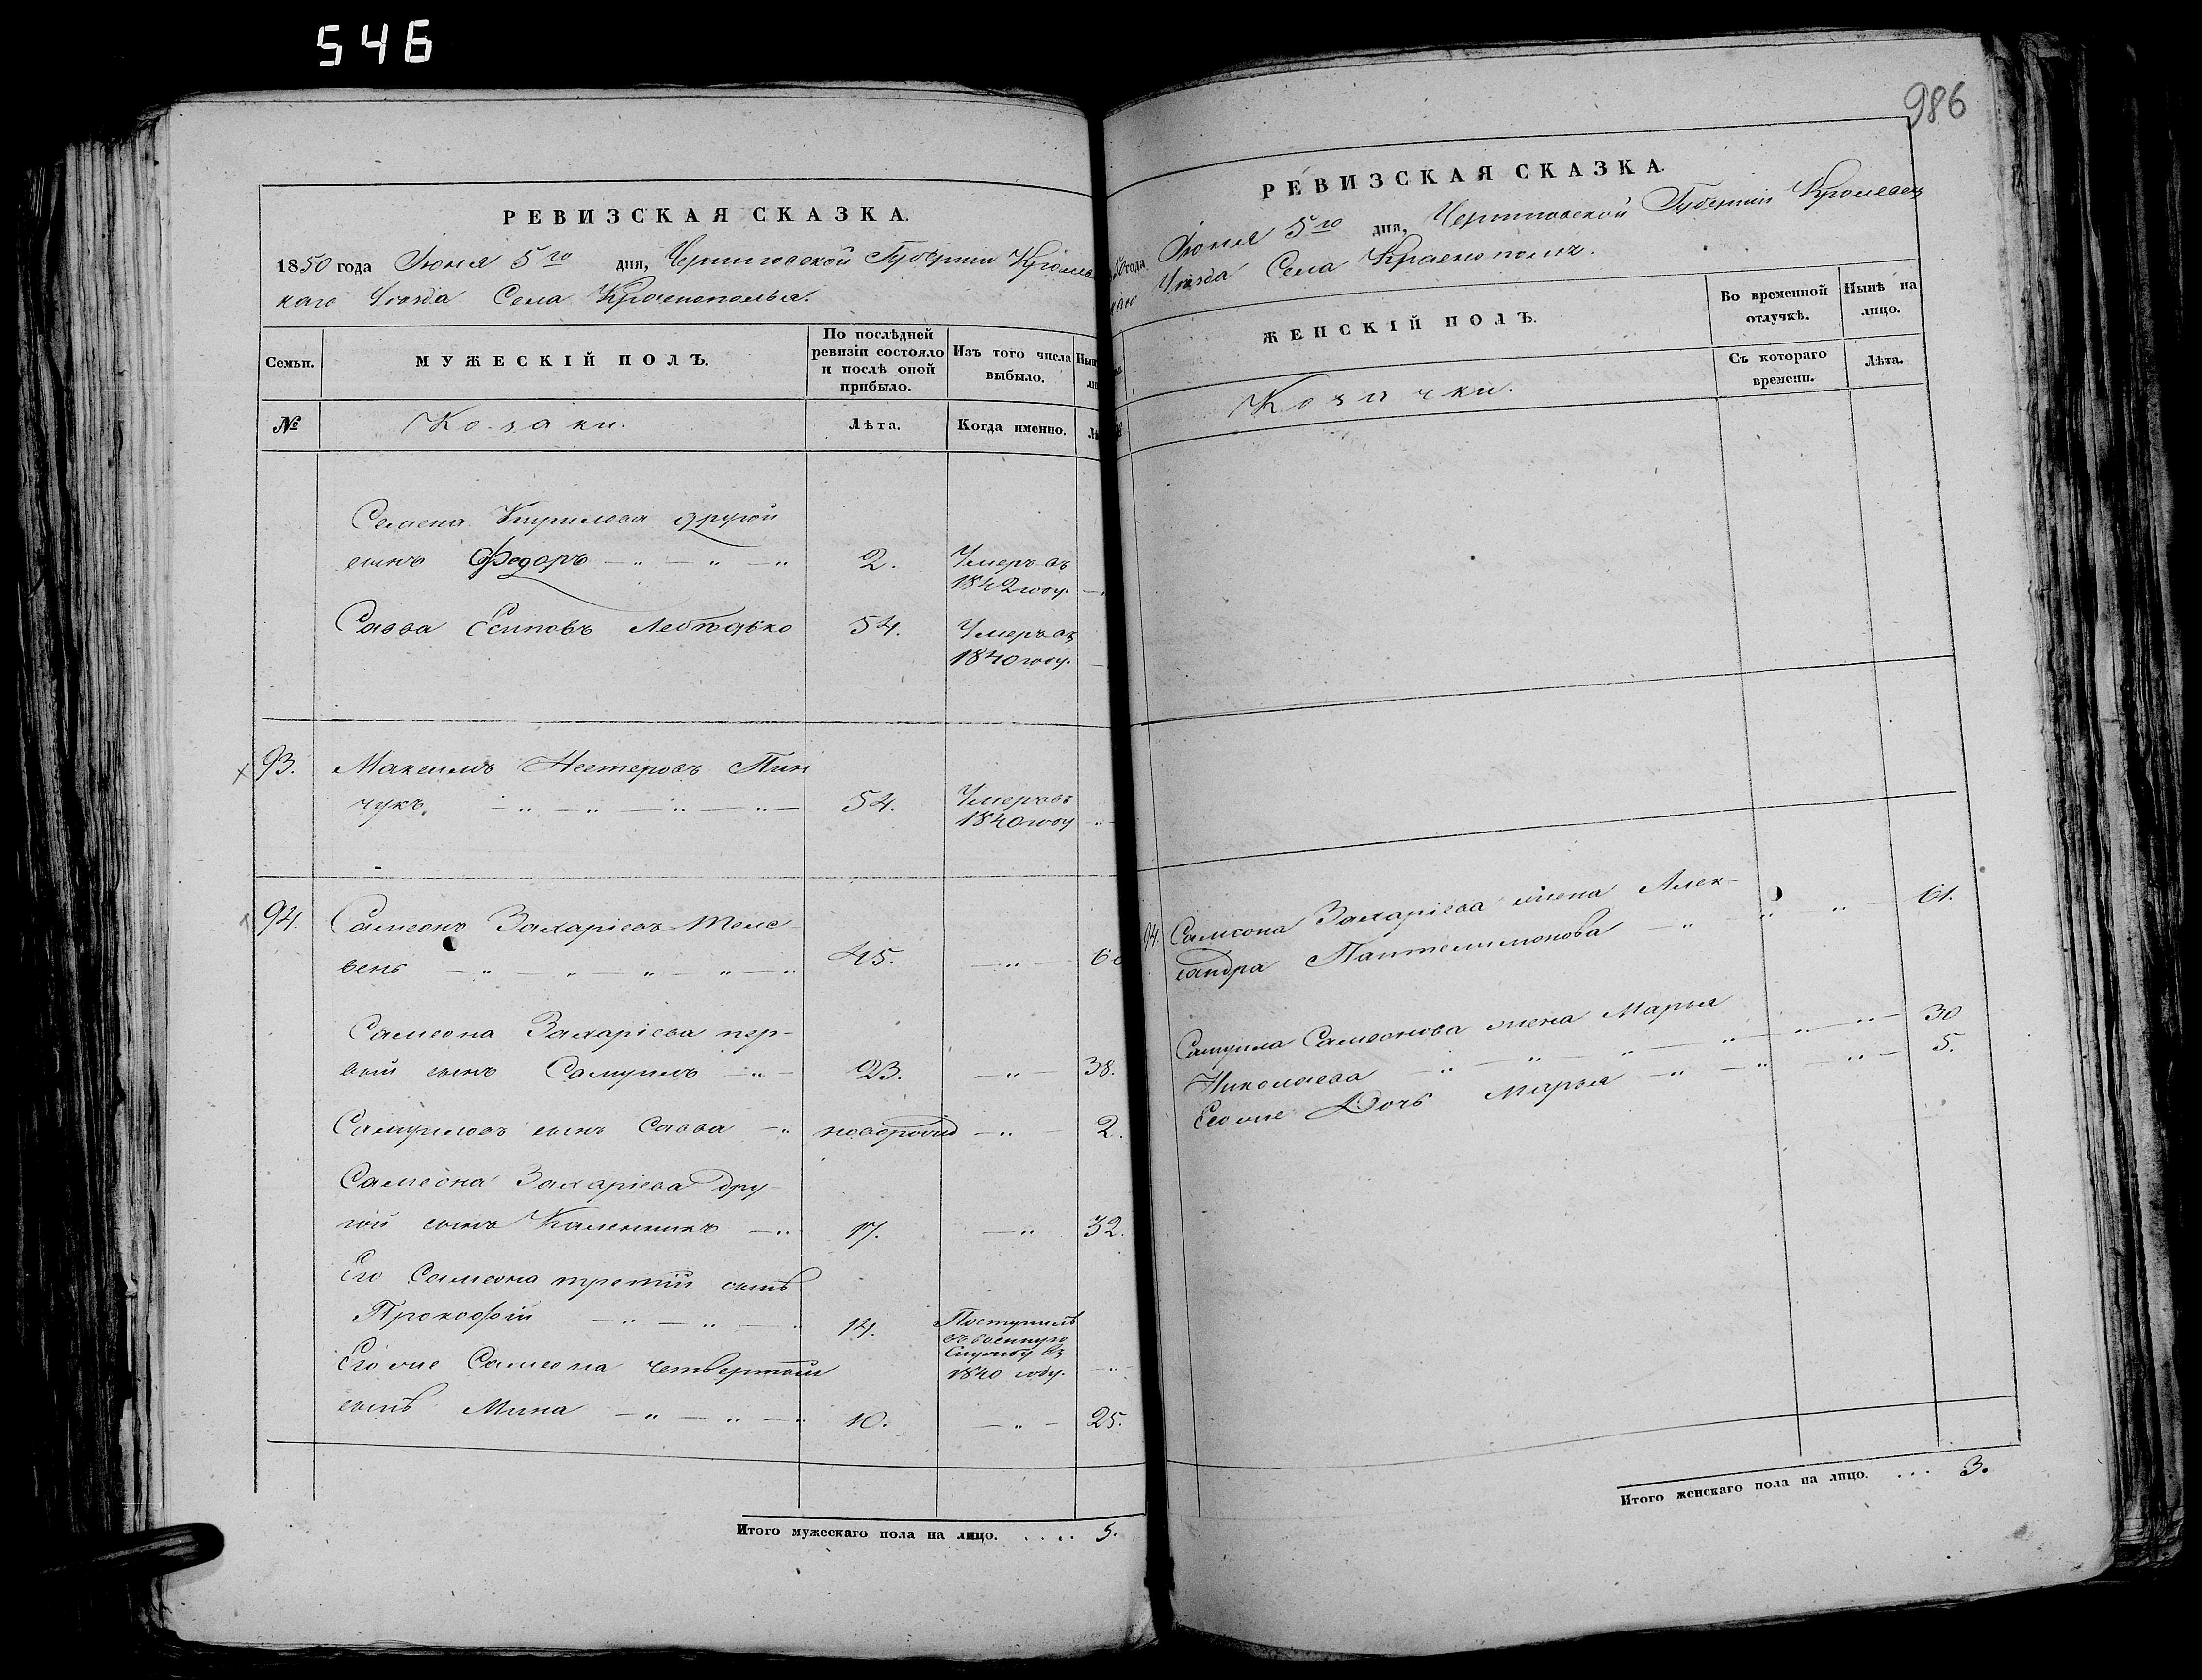 546
РЕВИЗСКАЯ СКАЗКА.
1850 года Іюня 5го дня, Черниговской Губерніи Кролеве
каго Уѣзда Села Краснополья.
Семьи.
МУЖЕСКІЙ ПОЛЪ.
По послѣдней ревизіи состояло и послѣ оной прибыло.
Изъ того числа выбыло.
№
Козаки.
Лѣта.
Когда именно.
Семена Кирилова другой
сынъ Федоръ 2. Умеръ въ
1842 году.
Савва Есиповъ Лебѣдько 54. Умеръ въ
1840 году.
93. Максимъ Нестеровъ Пин
чукъ 54. Умеръ въ
1840 году
94. Самсонъ Захаріевъ
вень 45.
Самсона Захаріева пер-
вый сынъ Самуилъ 23. 38.
Самуиловъ сынъ Савва новорожд 2.
Самсона Захаріева дру-
гой сынъ Каленникъ 17. 32.
Его Самсона третій сынъ
Прокофій 14. Поступилъ
въ военную
Службу въ
1840 году.
Его же Самсона четвертый
сынъ Мина 10. 25.
Итого мужескаго пола на лицо. .... 5.
986
РЕВИЗСКАЯ СКАЗКА.
50 года Іюня 5го дня, Черниговской Губерніи Кролевец
Уѣзда Села Краснополья.
ЖЕНСКІЙ ПОЛЪ.
Во временной отлучкѣ.
Нынѣ на лицо.
Козачки.
Съ котораго времени.
Лѣта.
94. Самсона Захаріева жена Алек-
сандра Пантелимонова 61.
Самуила Самсонова жена Марья
Николаева 30
Его же Дочь Марья 5.
Итого женскаго пола на лицо. ... 3.